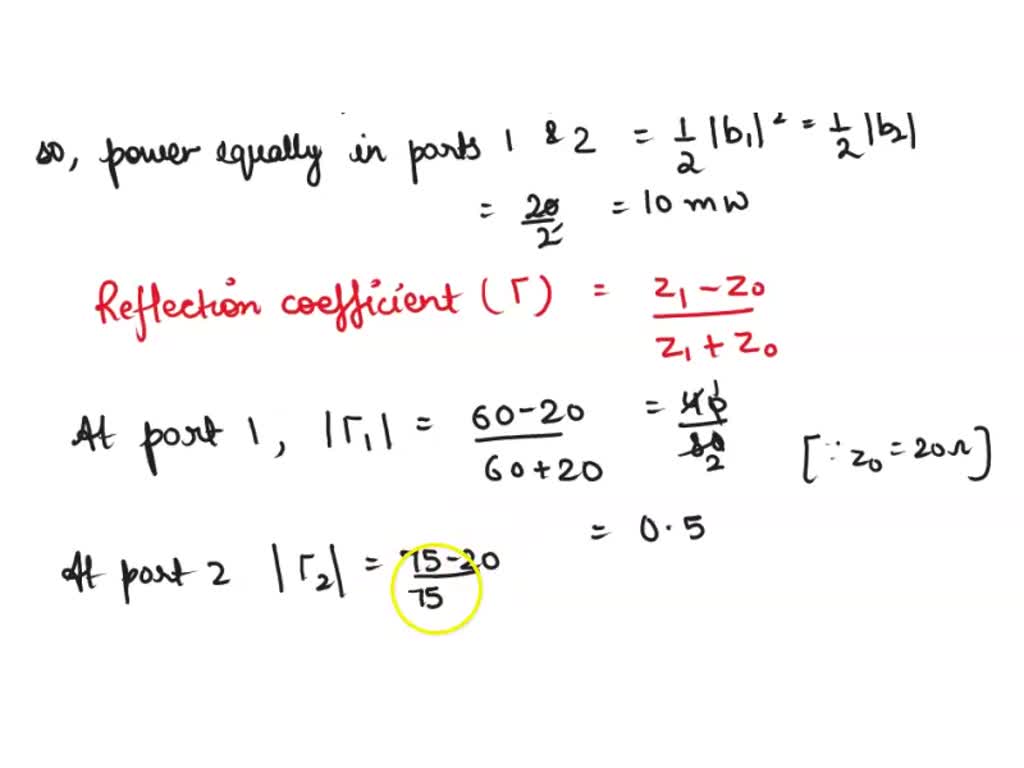 so, power equally in parts 1 & 2 = 1/2 |b₁|² = 1/2 |b₂|
= 20/2 = 10 mW
Reflection coefficient (Γ) = z₁ - z₀ / z₁ + z₀
At port 1, |Γ₁| = 60-20 / 60+20 = 40 1 / 80 2 [∵ z₀ = 20Ω]
= 0.5
At port 2 |Γ₂| = 75-20 / 75